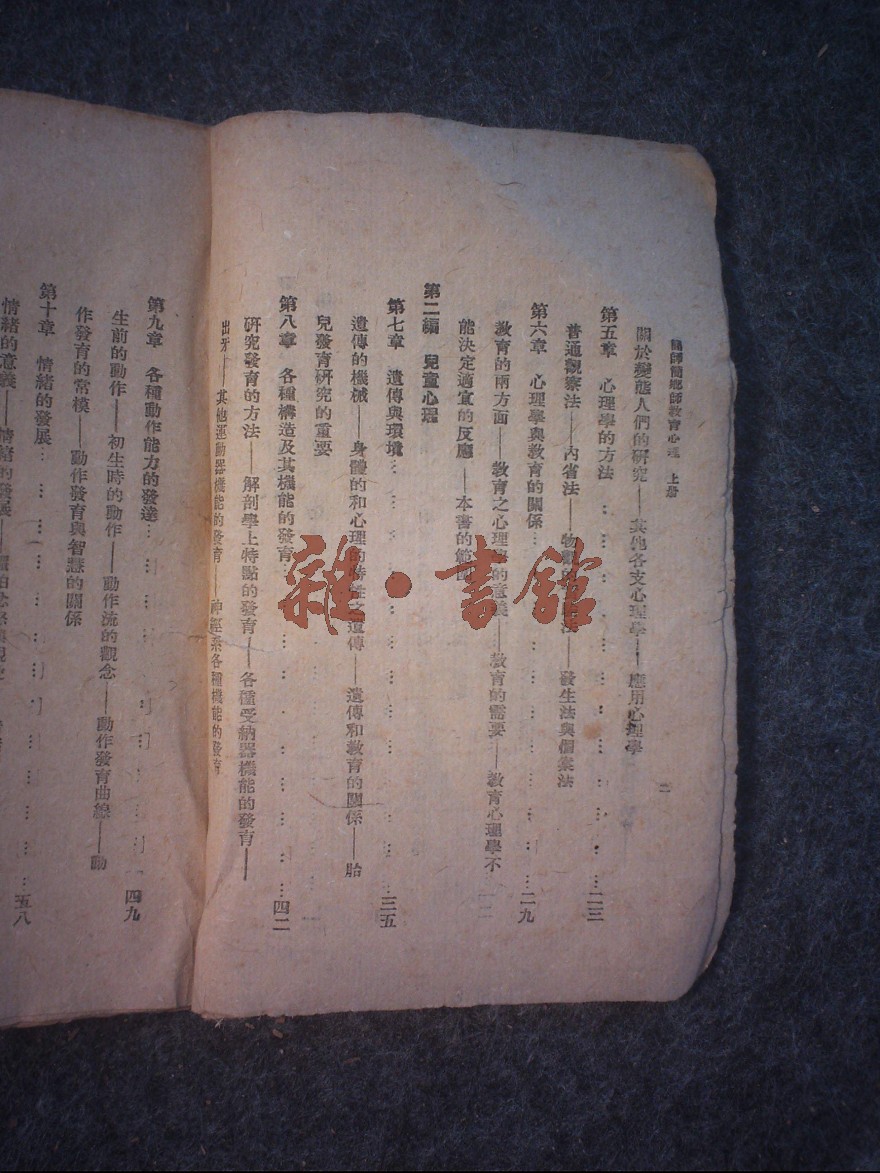 簡師簡鄉師教育心理 上册
二
關於變態人們的研究——其他各支心理學——應用心理學
第五章 心理學的方法……二三
普通觀察法——內省法——物觀的 法——發生法與個案法
第六章 心理學與教育的關係……二九
教育的兩方面——教育之心理學的意義——教育的需要——教育心理學不
能決定適宜的反應——本書的範圍
第二編 兒童心理
第七章 遺傳與環境……三五
遺傳的機械——身體的和心理的特性之遺傳——遺傳和教育的關係——胎
兒發育研究的重要
第八章 各種構造及其機能的發育……四二
研究發育的方法——解剖學上特點的發育——各種受納器機能的發育——
出牙——其他運動器機能的發育——神經系各種機能的發育
第九章 各種動作能力的發達……四九
生前的動作——初生時的動作——動作流的觀念——動作發育曲線——動
作發育的常模——動作發育與智慧的關係
第十章 情緒的發展……五八
情緒的意義——情緒的發展——
雜·書館